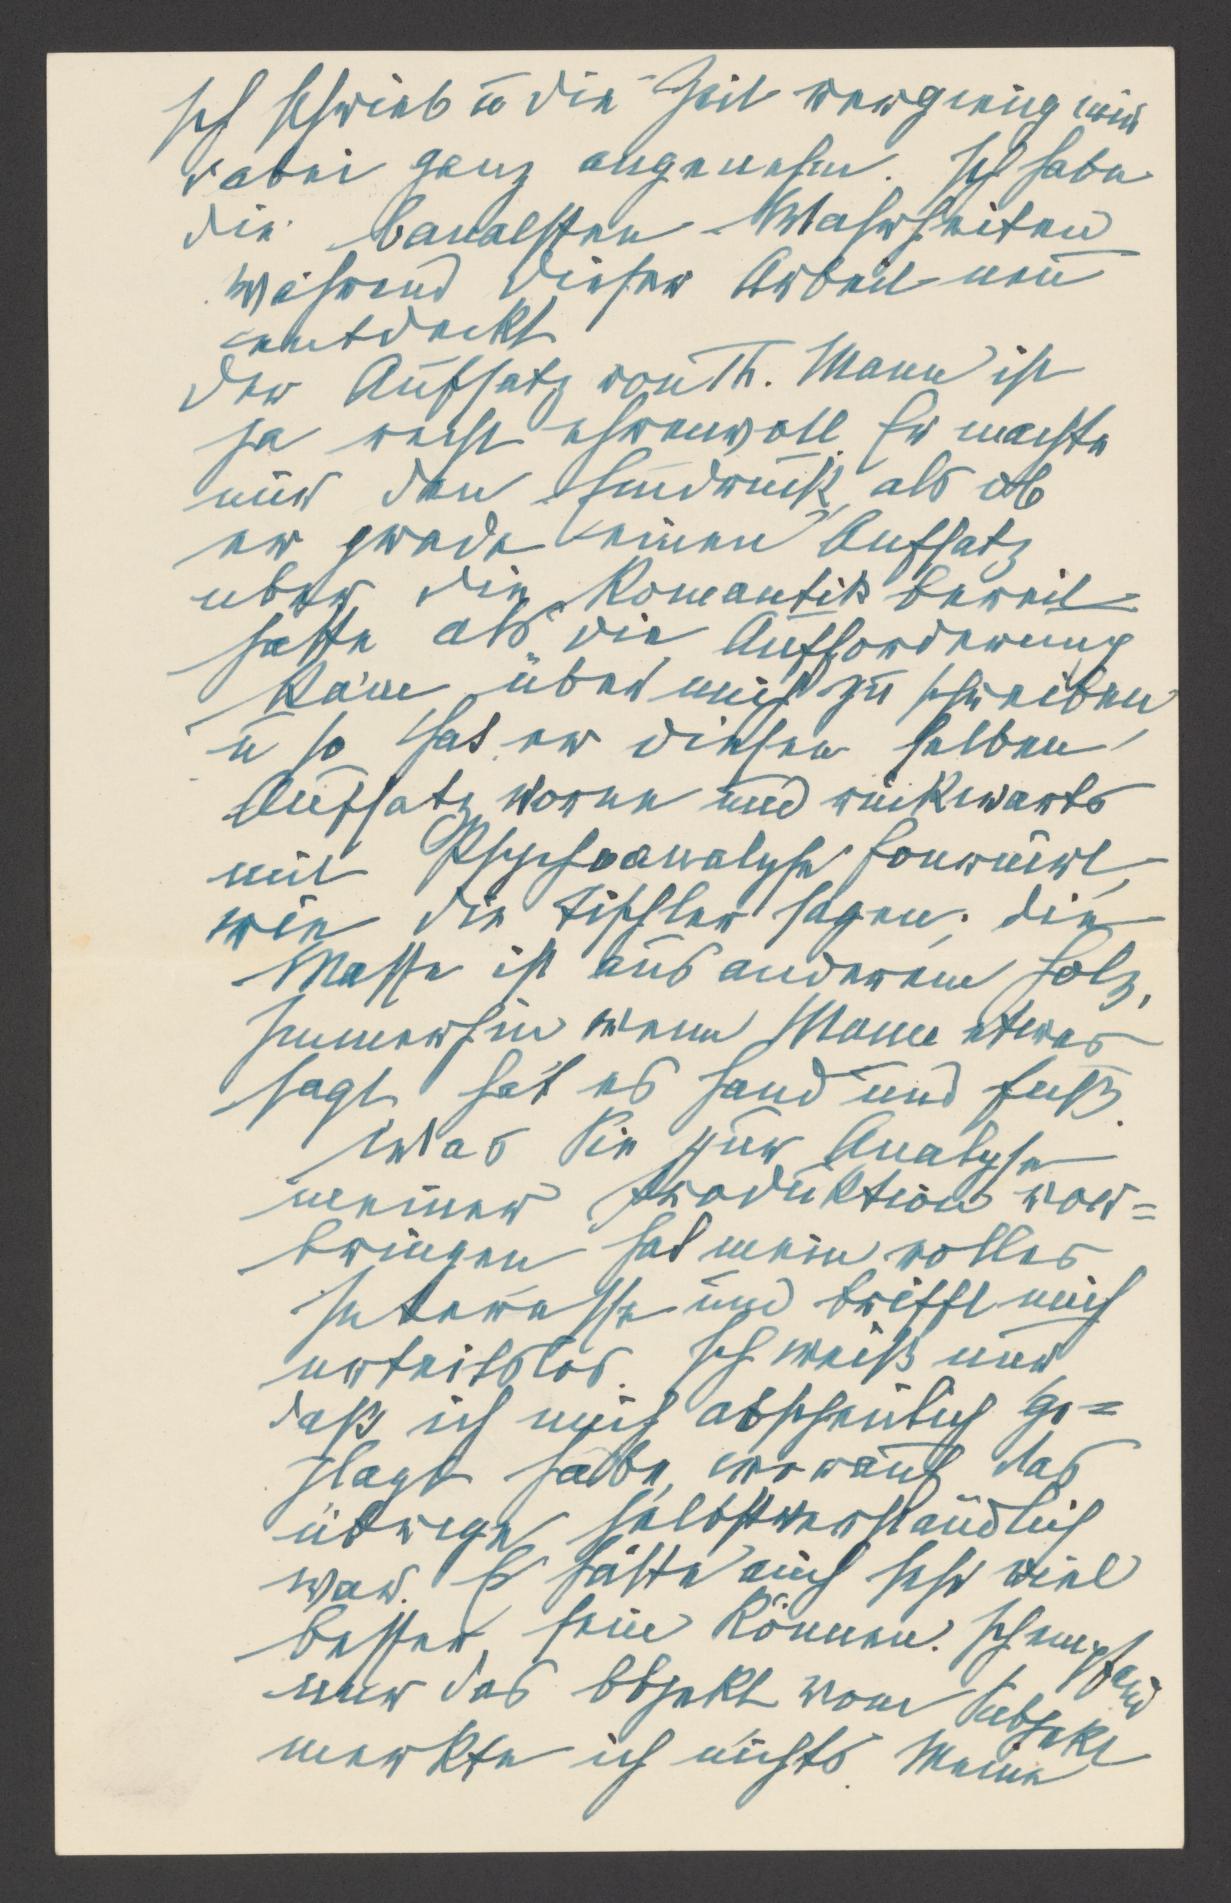 Ich schrieb ū die Zeit verging mir
dabei ganz angenehm. Ich habe
die banalsten Wahrheiten
während dieser Arbeit neu
entdeckt
Der Aufsatz von Th. Mann ist
ja recht ehrenvoll. Er machte
mir den Eindruck, als ob
er grade einen Aufsatz
über die Romantik bereit
hatte als die Aufforderung
kam über mich zu schreiben
ū so hat er diesen selben
Aufsatz vorne und rückwarts
mit Psychoanalyse fournirt,
wie die Tischler sagen; die
Masse ist aus anderem Holz,
Immerhin wenn Mann etwas
sagt hat es Hand und Fuß.
Was Sie zur Analyse
meiner Produktion vor=
bringen hat mein volles
Interesse und trifft mich
urteilslos. Ich weiß nur
daß ich mich abscheulich ge=
plagt habe, worauf das
übrige selbstverständlich
war. Es hätte auch sehr viel
besser sein können. Ich empfand
nur das Objekt vom Subjekt
merkte ich nichts. Meine